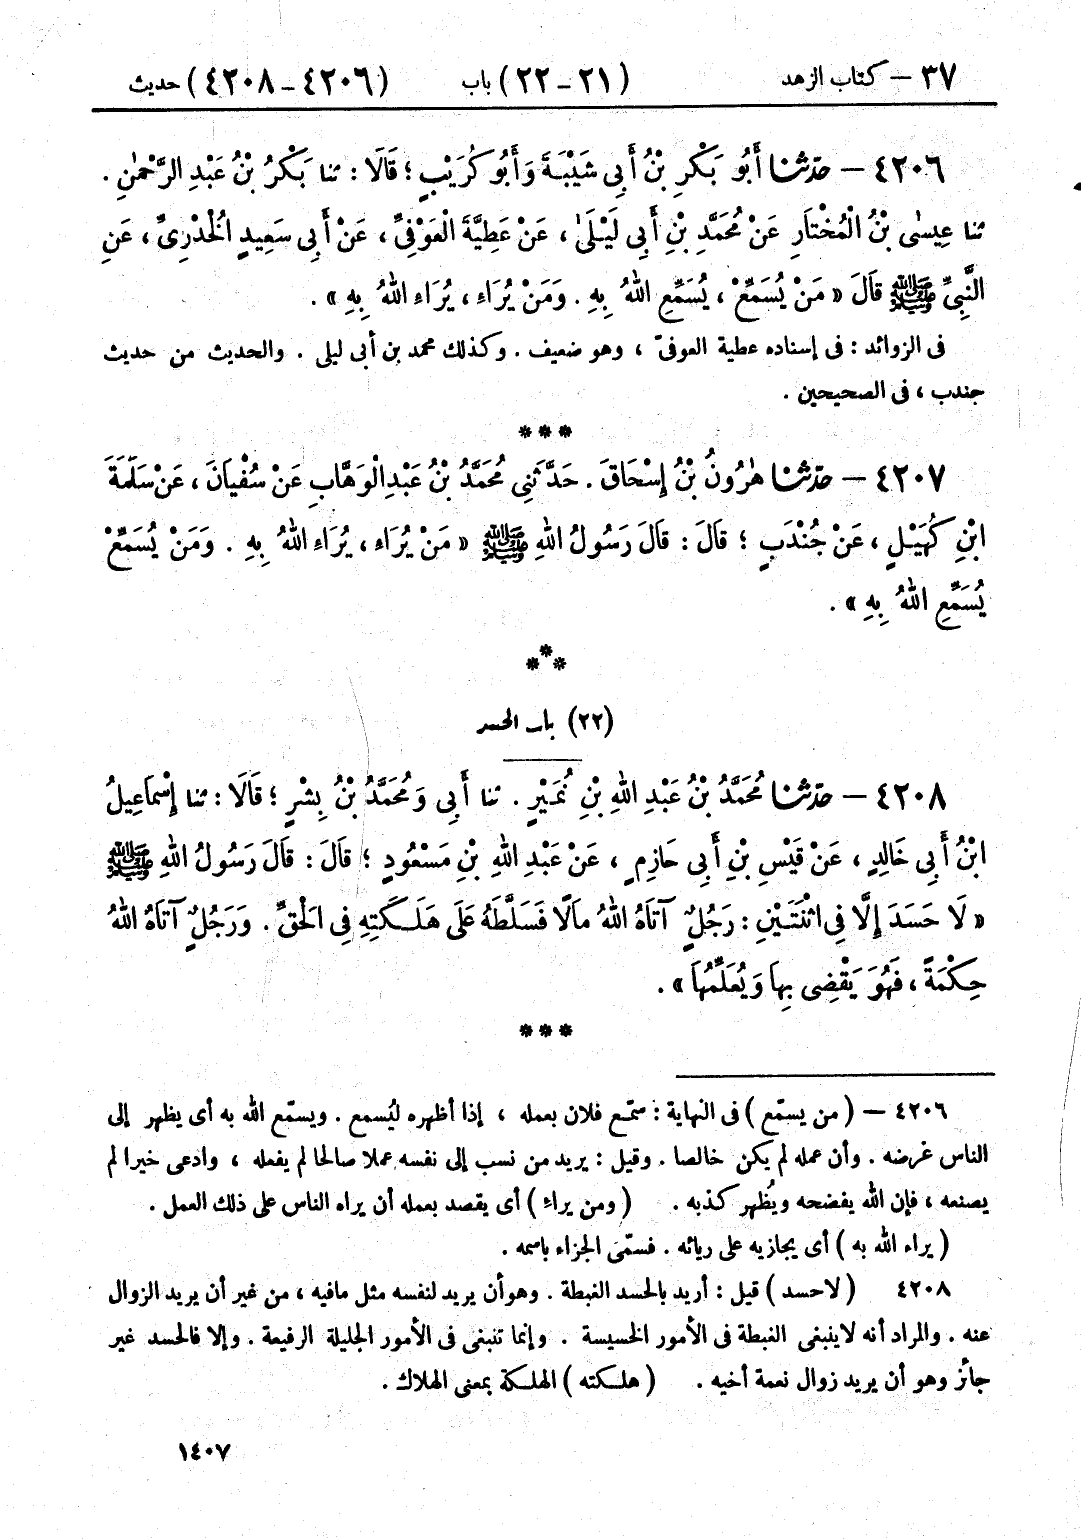 ٣٧ – كتاب الزهد (٢١ – ٢٢) باب (٤٢٠٦ – ٤٢٠٨) حديث
٤٢٠٦ – حَدَّثَنَا أَبُو بَكْرِ بْنُ أَبِي شَيْبَةَ وَأَبُو كُرَيْبٍ ؛ قَالَا : ثنا بَكْرُ بْنُ عَبْدِ الرَّحْمٰنِ .
ثنا عِيسٰى بْنُ الْمُخْتَارِ عَنْ مُحَمَّدِ بْنِ أَبِي لَيْلَىٰ ، عَنْ عَطِيَّةَ الْعَوْفِيِّ ، عَنْ أَبِي سَعِيدٍ الْخُدْرِيِّ ، عَنِ
النَّبِيِّ ﷺ قَالَ « مَنْ يُسَمِّعْ ، يُسَمِّعِ اللهُ بِهِ . وَمَنْ يُرَاءِ ، يُرَاءِ اللهُ بِهِ » .
فى الزوائد : فى إسناده عطية العوفىّ ، وهو ضعيف . وكذلك محمد بن أبى ليلى . والحديث من حديث
جندب ، فى الصحيحين .
***
٤٢٠٧ – حَدَّثَنَا هٰرُونُ بْنُ إِسْحَاقَ . حَدَّثَنِي مُحَمَّدُ بْنُ عَبْدِ الْوَهَّابِ عَنْ سُفْيَانَ ، عَنْ سَلَمَةَ
ابْنِ كُهَيْلٍ ، عَنْ جُنْدَبٍ ؛ قَالَ : قَالَ رَسُولُ اللهِ ﷺ « مَنْ يُرَاءِ ، يُرَاءِ اللهُ بِهِ . وَمَنْ يُسَمِّعْ
يُسَمِّعِ اللهُ بِهِ » .
***
(٢٢) باب الحسد
٤٢٠٨ – حَدَّثَنَا مُحَمَّدُ بْنُ عَبْدِ اللهِ بْنِ نُمَيْرٍ . ثنا أَبِي وَمُحَمَّدُ بْنُ بِشْرٍ ؛ قَالَا : ثنا إِسْمَاعِيلُ
ابْنُ أَبِي خَالِدٍ ، عَنْ قَيْسِ بْنِ أَبِي حَازِمٍ ، عَنْ عَبْدِ اللهِ بْنِ مَسْعُودٍ ؛ قَالَ : قَالَ رَسُولُ اللهِ ﷺ
« لَا حَسَدَ إِلَّا فِي اثْنَتَيْنِ : رَجُلٌ آتَاهُ اللهُ مَالًا فَسَلَّطَهُ عَلَى هَلَكَتِهِ فِي الْحَقِّ . وَرَجُلٌ آتَاهُ اللهُ
حِكْمَةً ، فَهُوَ يَقْضِي بِهَا وَيُعَلِّمُهَا » .
***
٤٢٠٦ – ( من يسمّع ) فى النهاية : سمّع فلان بعمله ، إذا أظهره ليُسمع . ويسمّع الله به أى يظهر إلى
الناس غرضه . وأن عمله لم يكن خالصا . وقيل : يريد من نسب إلى نفسه عملا صالحا لم يفعله ، وادعى خيرا لم
يصنعه ، فإن الله يفضحه ويُظهر كذبه . ( ومن يراء ) أى يقصد بعمله أن يراه الناس على ذلك العمل .
( يراء الله به ) أى يجازيه على ريائه . فسمّى الجزاء باسمه .
٤٢٠٨ ( لا حسد ) قيل : أريد بالحسد الغبطة . وهو أن يريد لنفسه مثل مافيه ، من غير أن يريد الزوال
عنه . والمراد أنه لا ينبغى الغبطة فى الأمور الخسيسة . وإنما تنبغى فى الأمور الجليلة الرفيعة . وإلا فالحسد غير
جائز وهو أن يريد زوال نعمة أخيه . ( هلكته ) الهلكة بمعنى الهلاك .
١٤٠٧